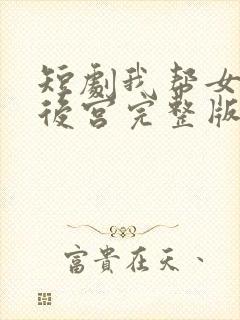 短劇我帮女
後宫完整版
富貴在天、